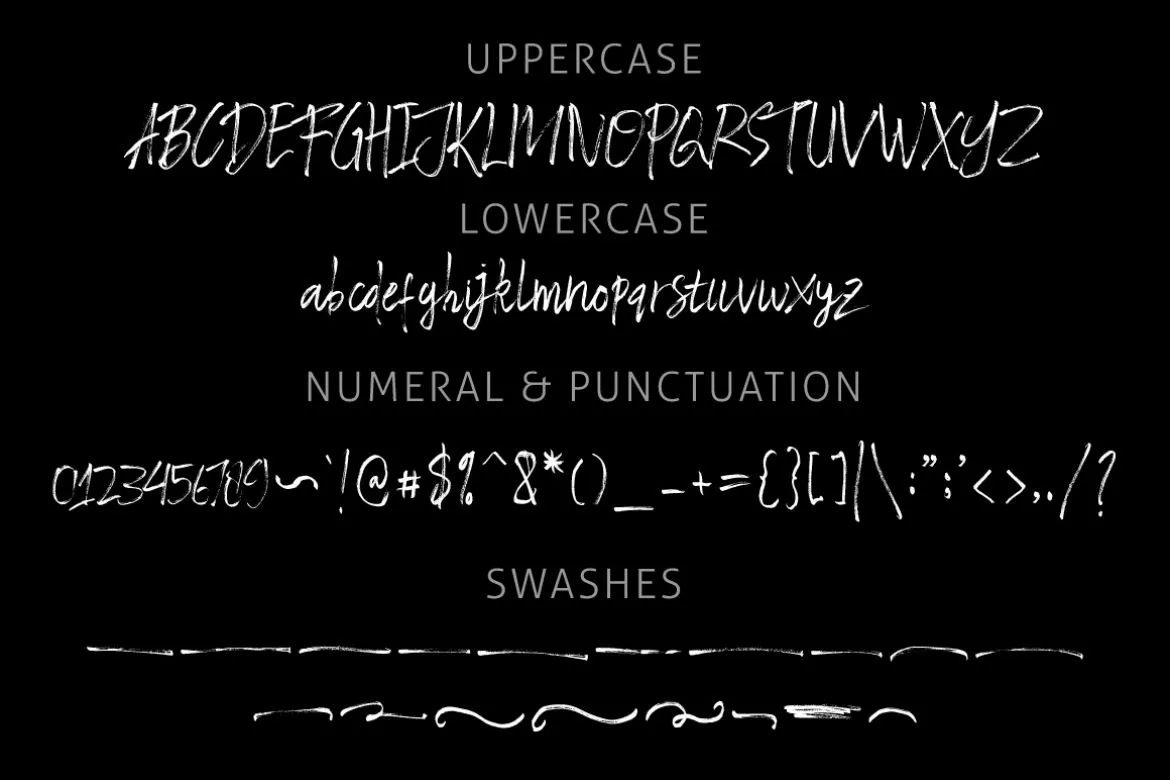 UPPERCASE
ABCDEFGHIJKLMNOPQRSTUVWXYZ
LOWERCASE
abcdefghijklmnopqrstuvwxyz
NUMERAL & PUNCTUATION
0123456789~`!@#$%^&*()_-+={}[]|\:";'<>,./?
SWASHES